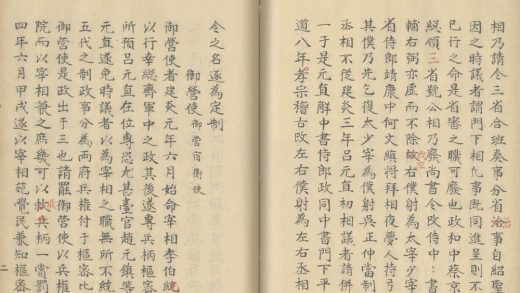 相乃請令三省合班奏事分省治事自紹聖
因之時議者謂門下相凢事既同進呈則不
已行之命是省審之職可廢也政和中蔡京
總領三省號公相乃廢尚書令改侍中:書
輔右弼亦虛而不除故右僕射為太宰少宰
省侍郎靖康中何文縝將拜相夜夢人持弓
其僕乃先乞復太少宰為僕射吳正仲當制
丞相不從建炎三年吕元直初相議者請併
一于是元直觧中書侍郎政同中書門下平
道八年孝宗稽古改左右僕射為左右丞相
令之名遂為定制
御營使御營宿衛使
御營使者建炎元年六月始命宰相李伯紀
以行幸總齊軍中之政其後遂專兵柄樞密
所預吕元直在位專恣尤甚臺官趙元鎮等
元直遂免時議者以為宰相之職無所不統
五代之制政事分為兩府兵權付于樞密比
御營使是政出于三也請罷御營使以兵權
院而以宰相兼之庶幾可以收兵柄一賞罰
四年六月甲戌遂以宰相范覺民兼知樞密
二